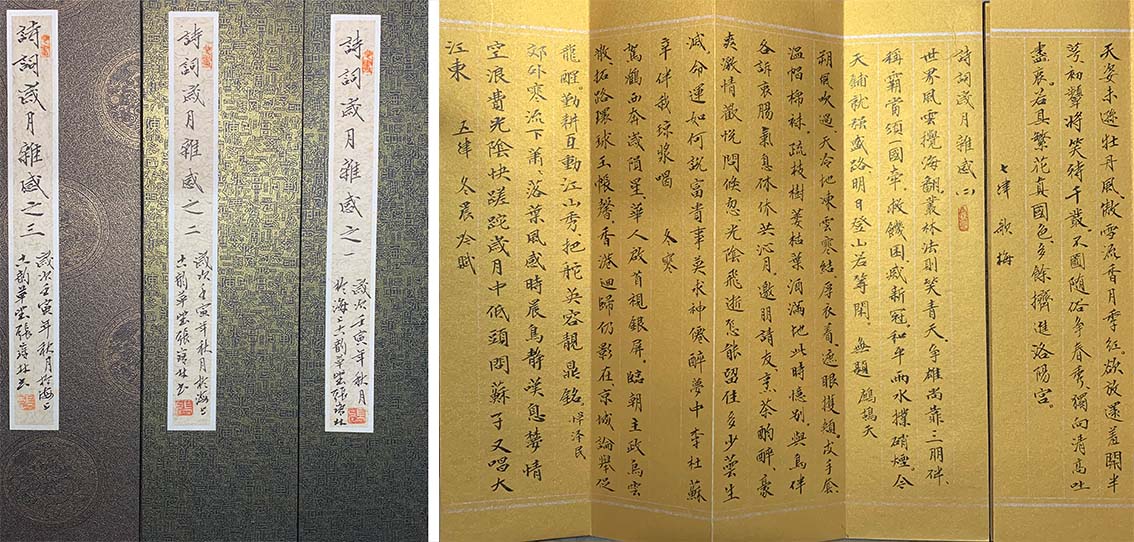 詩詞歲月雜感之一
歲次壬寅年秋月
於海上六韻草堂張
詩詞歲月雜感之二
歲次壬寅年秋月於海上
六韻草堂張
詩詞歲月雜感之三
歲次壬寅年秋月於海上
六韻草堂張
天姿未遜牡丹風。傲雪流香月季紅。欲放還羞開半
萼初顰將笑待千叢。不圖隨俗爭春秀。獨向清高吐
盡衷。若具繁花真國色。多餘擠進洛陽宮
七律 歌梅
詩詞歲月雜感(二)
世界風雲攪海翻。叢林法則笑青天。爭雄尚靠三朋伴、
稱霸當須一國牽。救饑困。滅新冠。和平雨水撲硝煙。今
天鋪就强盛路明日登山若等閑。 無題 鷓鴣天
朔風吹過、天冷地凍雲寒結。厚衣着、遮眼護頰。皮手套、
温帽棉袜。疏枝樹萎枯葉洒滿地。此時憶别。與鳥伴
各訴衷腸氣息休休共沁月。邀朋請友、烹茶酌醉、豪
爽激情歡悅問候忽光陰飛逝怎能留住多少蕓生
滅命運如何說富貴事莫求神僊醉夢中李杜蘇
辛伴我瓊漿喝 冬寒
駕鶴西奔歲隕星。華人啟首視銀屏。臨朝主政烏雲
散拓路環球玉帳馨。香港迴歸仍影在京城論舉從
龍醒。勤耕互動江山秀。把舵英容靚鼎銘。悼澤民
郊外寒流下蕭蕭落葉風感時晨鳥靜嘆息情
空浪費光陰快蹉跎歲月中低頭問蘇子又唱大
江東 五律 冬晨冷賦